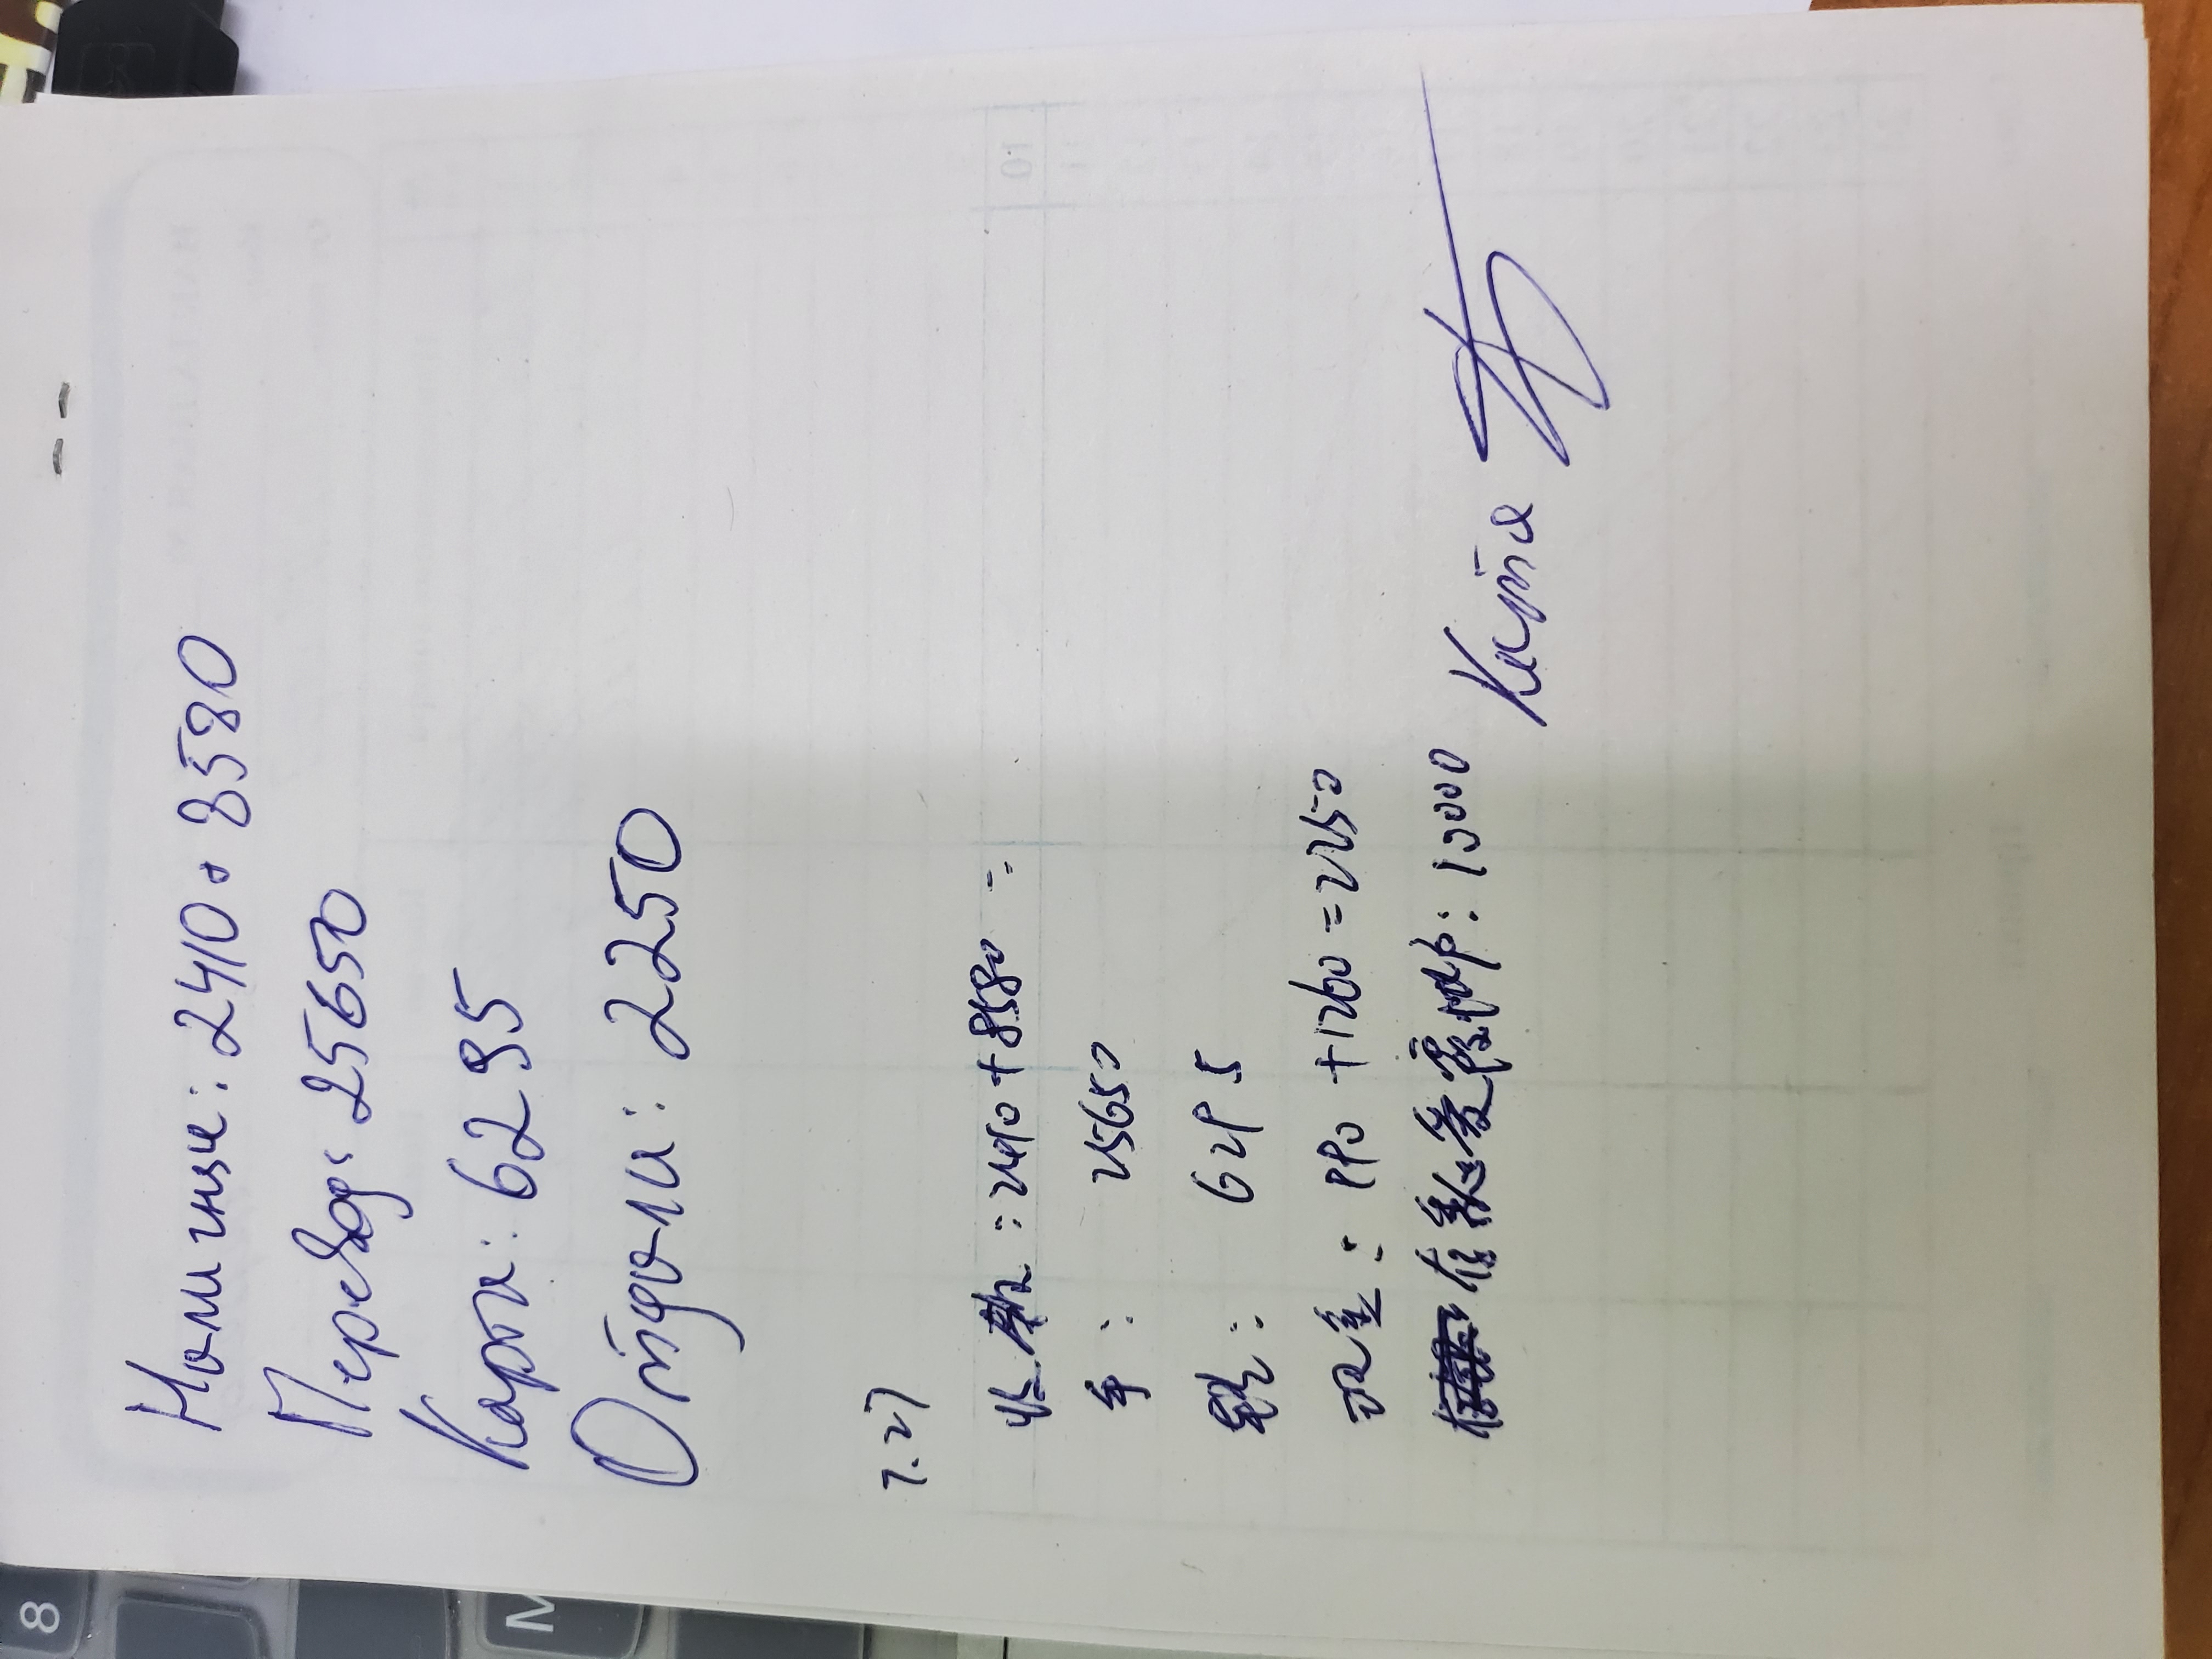 8
M
Наличные: 2410 + 8580
Перевод: 25650
Карта: 6295
Отдали: 2250
7.27
收款: 2410+8580 =
手: 25650
6295
现金: 990 +1260=2250
存款: 10000
Катя
10